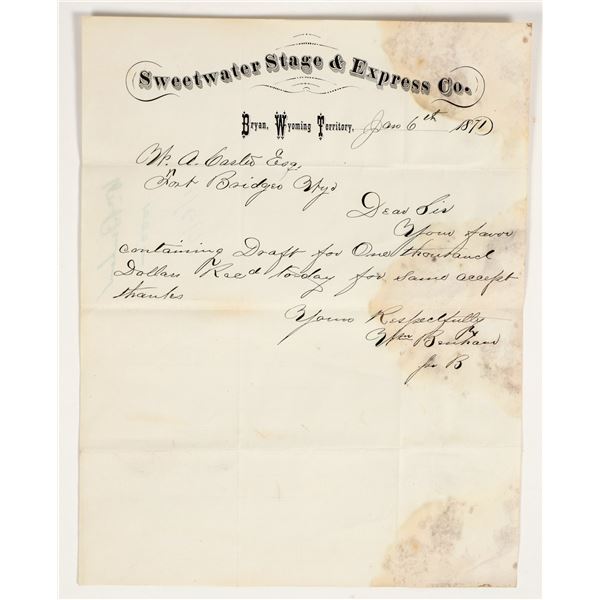 Sweetwater Stage & Express Co.
Bryan, Wyoming Territory, Jan 6th 1871
W. A. Carter Esq,
Fort Bridger Wyo
Dear Sir
Your favor
containing Draft for One thousand
Dollars Rec'd to-day for same accept
thanks
Yours Respectfully
Wm Benham
B